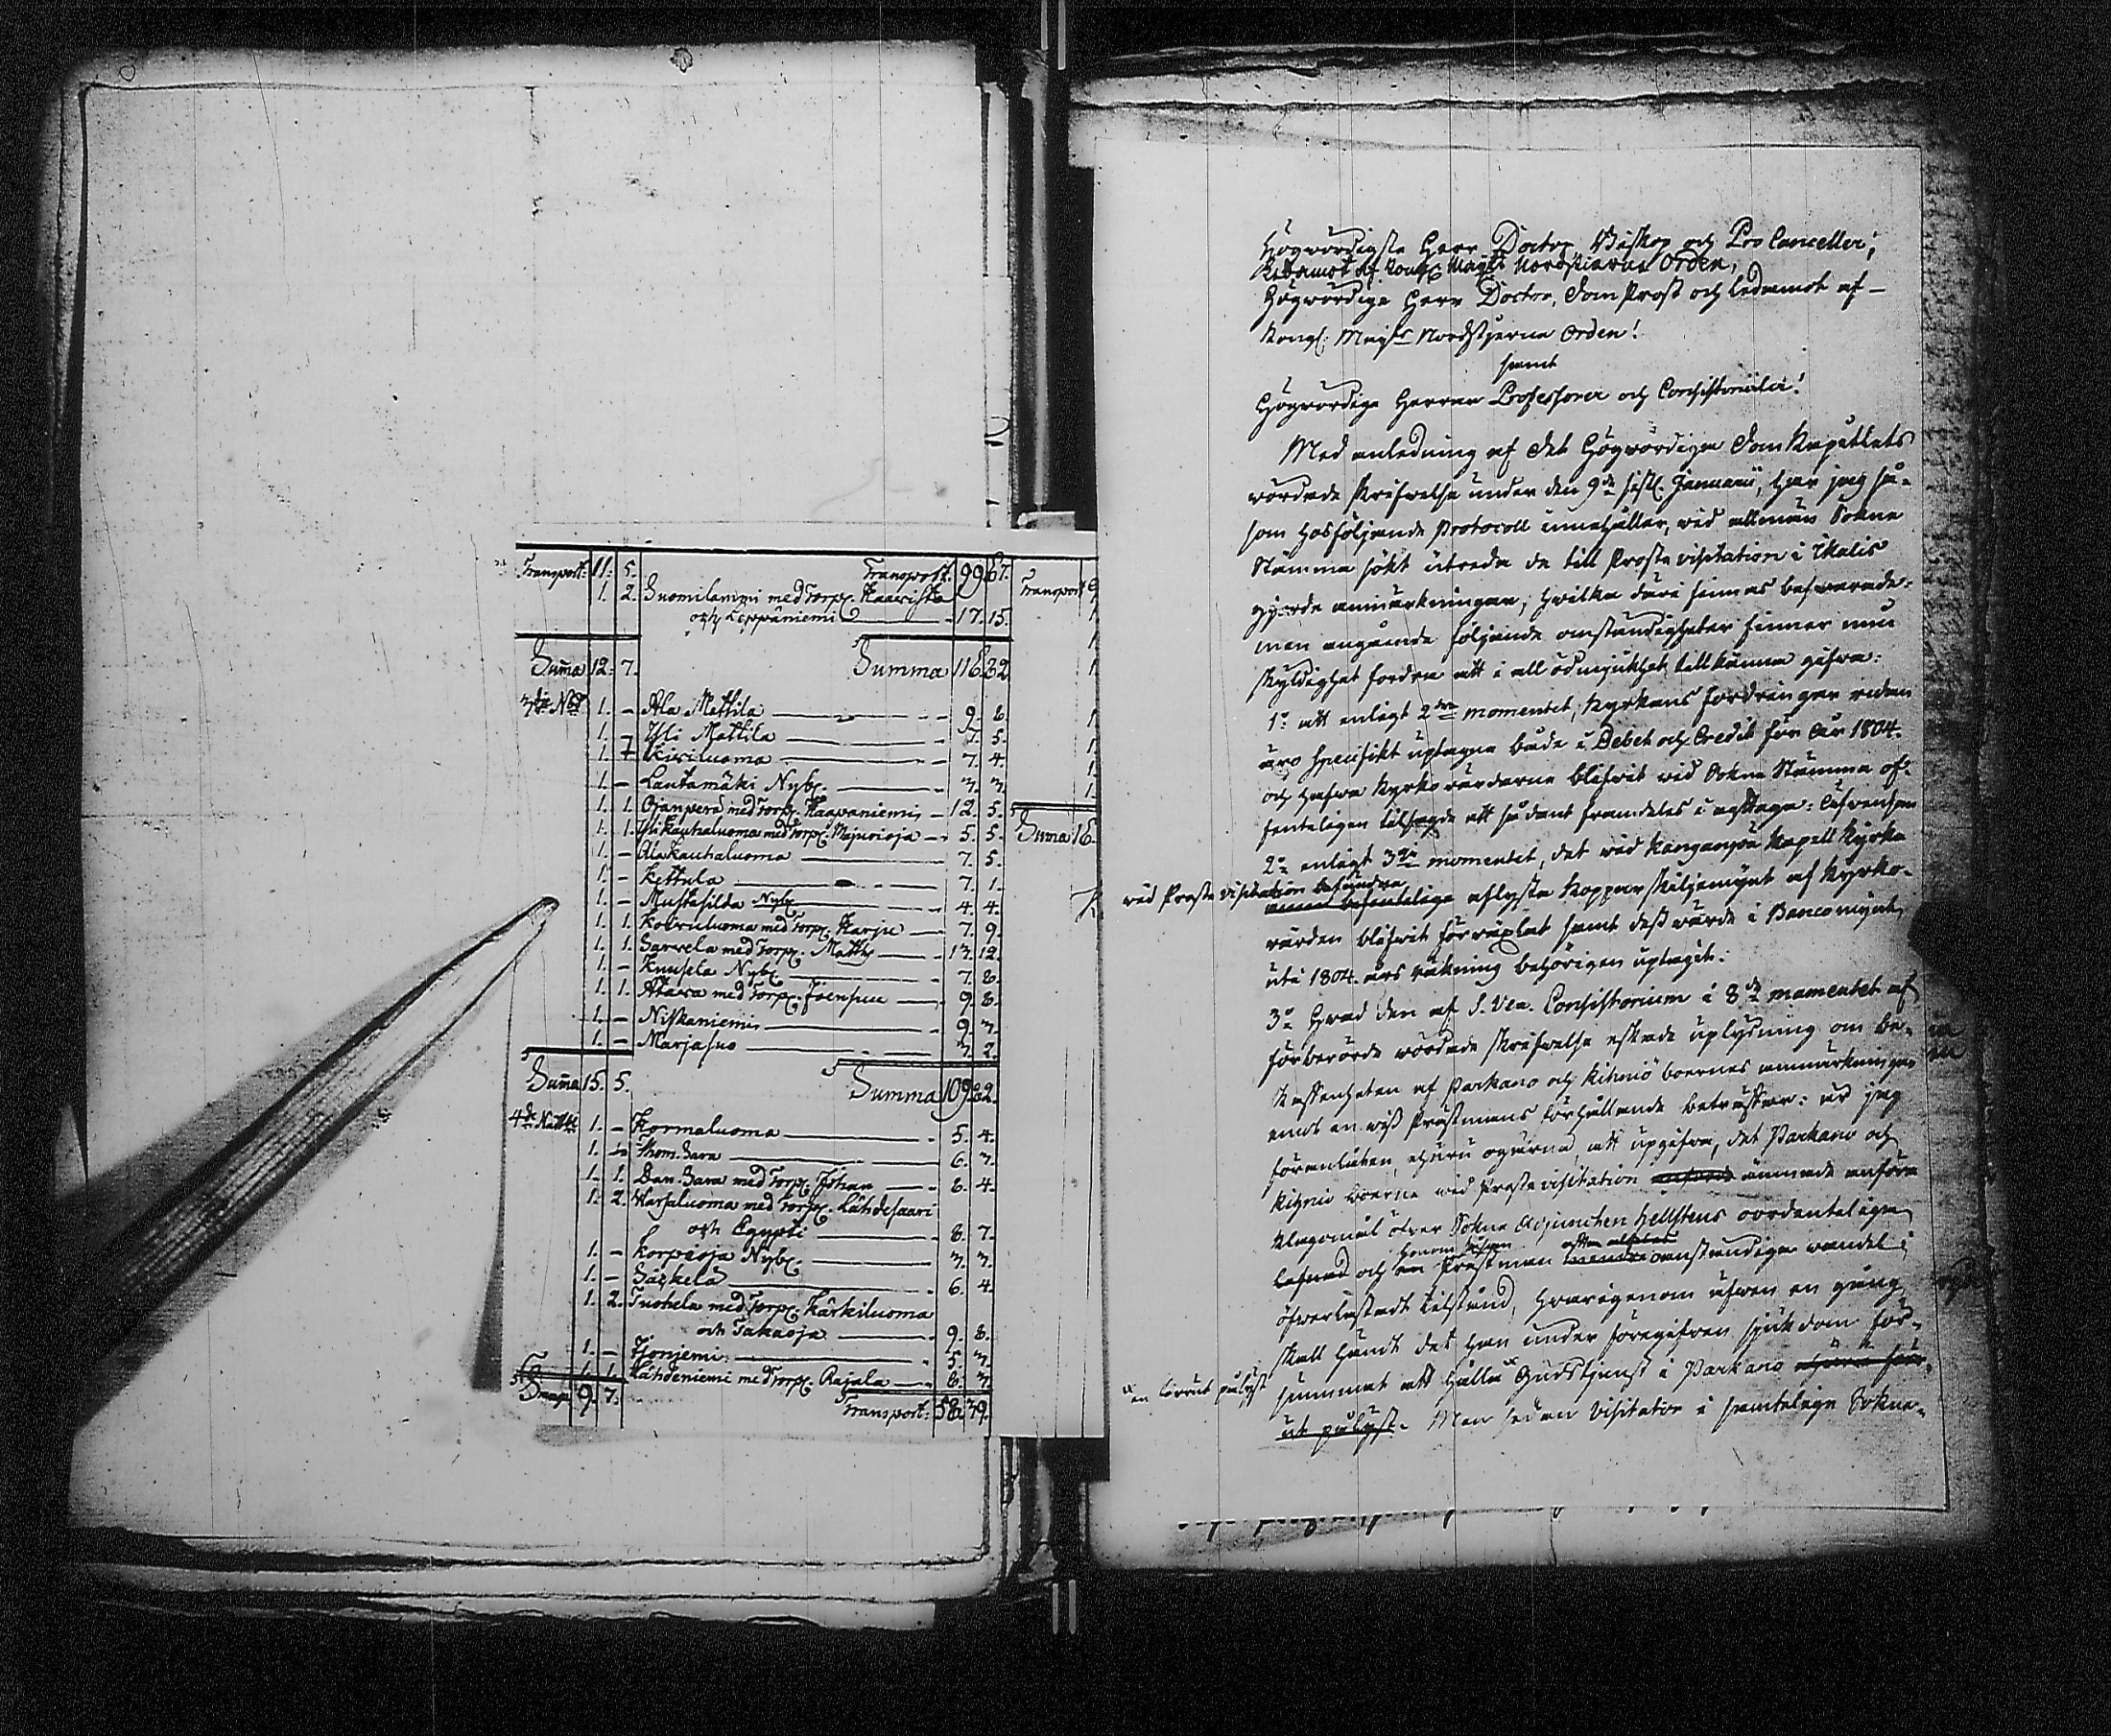 Transport: 11. 5. Transport. 99. 67.
1. 2. Suomilammi med Torp. Kaarista
och Leppäniemi 17. 15.
Suma 12. 7. Summa 116. 82.
3die Natt 1. – Ala Mattila 9. 8.
1. Yli Mattila 7. 5.
1. Kiviluoma 7. 4.
1. – Lautamäki Nyb. 3. 3.
1. 1. Ojanperä med Torp. Haapaniemi 12. 5.
1. 1. Yli Kauhaluoma med Torp. Majurioja 5. 5.
1. – Ala Kauhaluoma 7. 5.
1. – Kettula 7. 1.
1. – Mustasilda Nyb. 4. 4.
1. 1. Koivuluoma med Torp. Harju 7. 9.
1. 1. Sarvela med Torp. Matts 13. 12.
1. – Knusela Nyb. 7. 8.
1. 1. Alava med Torp. Joensuu 9. 8.
1. – Niskaniemi 9. 3.
1. – Marjasuo 3. 2.
Suma 15. 5. Summa 109. 82.
4de Natt 1. – Kormaluoma 5. 4.
1. – Thom. Sara 6. 3.
1. 1. Dan. Sara med Torp. Johan 8. 4.
1. 2. Warpaluoma med Torp. Lähdesaari
och Egypti 8. 7.
1. – Korpioja Nyb. 3. 3.
1. – Säskelä 6. 4.
1. 2. Tuohela med Torp. Kärkiluoma
och Takaoja 9. 8.
1. – Konjemi 5. 3.
1. 1. Lähdeniemi med Torp. Rajala 8. 3.
9. 7. Transport: 58. 39.
Transport
Suma 16.
Högwördigste Herr Doctor, Biskop och Pro Canceller,
Ledamot af Kongl. Maj:ts Nordstierne Orden,
Högwördige Herr Doctor, Dom Prost och Ledamot af
Kongl. Maj:ts Nordstjerne Orden!
samt
Högwördige Herrar Professorer och Consistorialer!
Med anledning af det Högwördiga Dom Kapitlets
wördade skrifwelse under den 9de sistl. Januarii, har jag så-
som hosföljande Protocoll innehåller, wid allmän Sokne
Stämma sökt utreda de till Proste visitation i Ikalis
gjorde anmärkningar, hwilka deri finnas beswarade:
men angående följande omständigheter finner min
skyldighet fordra att i all ödmjukhet tillkänna gifwa:
1o att enligt 2dra momentet, Kyrkans fordringar redan
äro specifikt uptagne både i Debet och Credit för år 1804.
och hafwa Kyrkowärdarne blifwit wid Sokne Stämma of-
fenteligen tilsagde att sådant framdeles i agttaga: Äfwensom
2o enligt 3die momentet, det wid Kangasjärvi Kapell Kyrka
wid Proste visitation befundne
aflyste Kopparskiljemynt af Kyrko-
wärden blifwit förwäxlat samt dess wärde i Bancomynt
uti 1804 års räkning behörigen uptagit.
3o Hwad den af S. Ven. Consistorium i 8de momentet af
förberörde wördade skrifwelse äskade uplysning om be-
skaffenheten af Parkano och Kihniö boernes anmärkningar
emot en wiss Prästmans förhållande beträffar: är jag
föranlåten, ehuru ogerna, att upgifwa, det Parkano och
Kihniö boerne wid Proste visitation anförde ämnade anföra
klagomål öfver Sokne Adjuncten Hellstens oordenteliga
lefnad och Prästman oanständiga wandel i
öfwerlastadt tilstånd, hwarigenom äfwen en gång
skall händt det han under föregifwen sjukdom för-
summat att hålla Gudstjenst i Parkano
en förut pålyst
ut pålyst. Men sedan Visitator i samtelige Sokne-